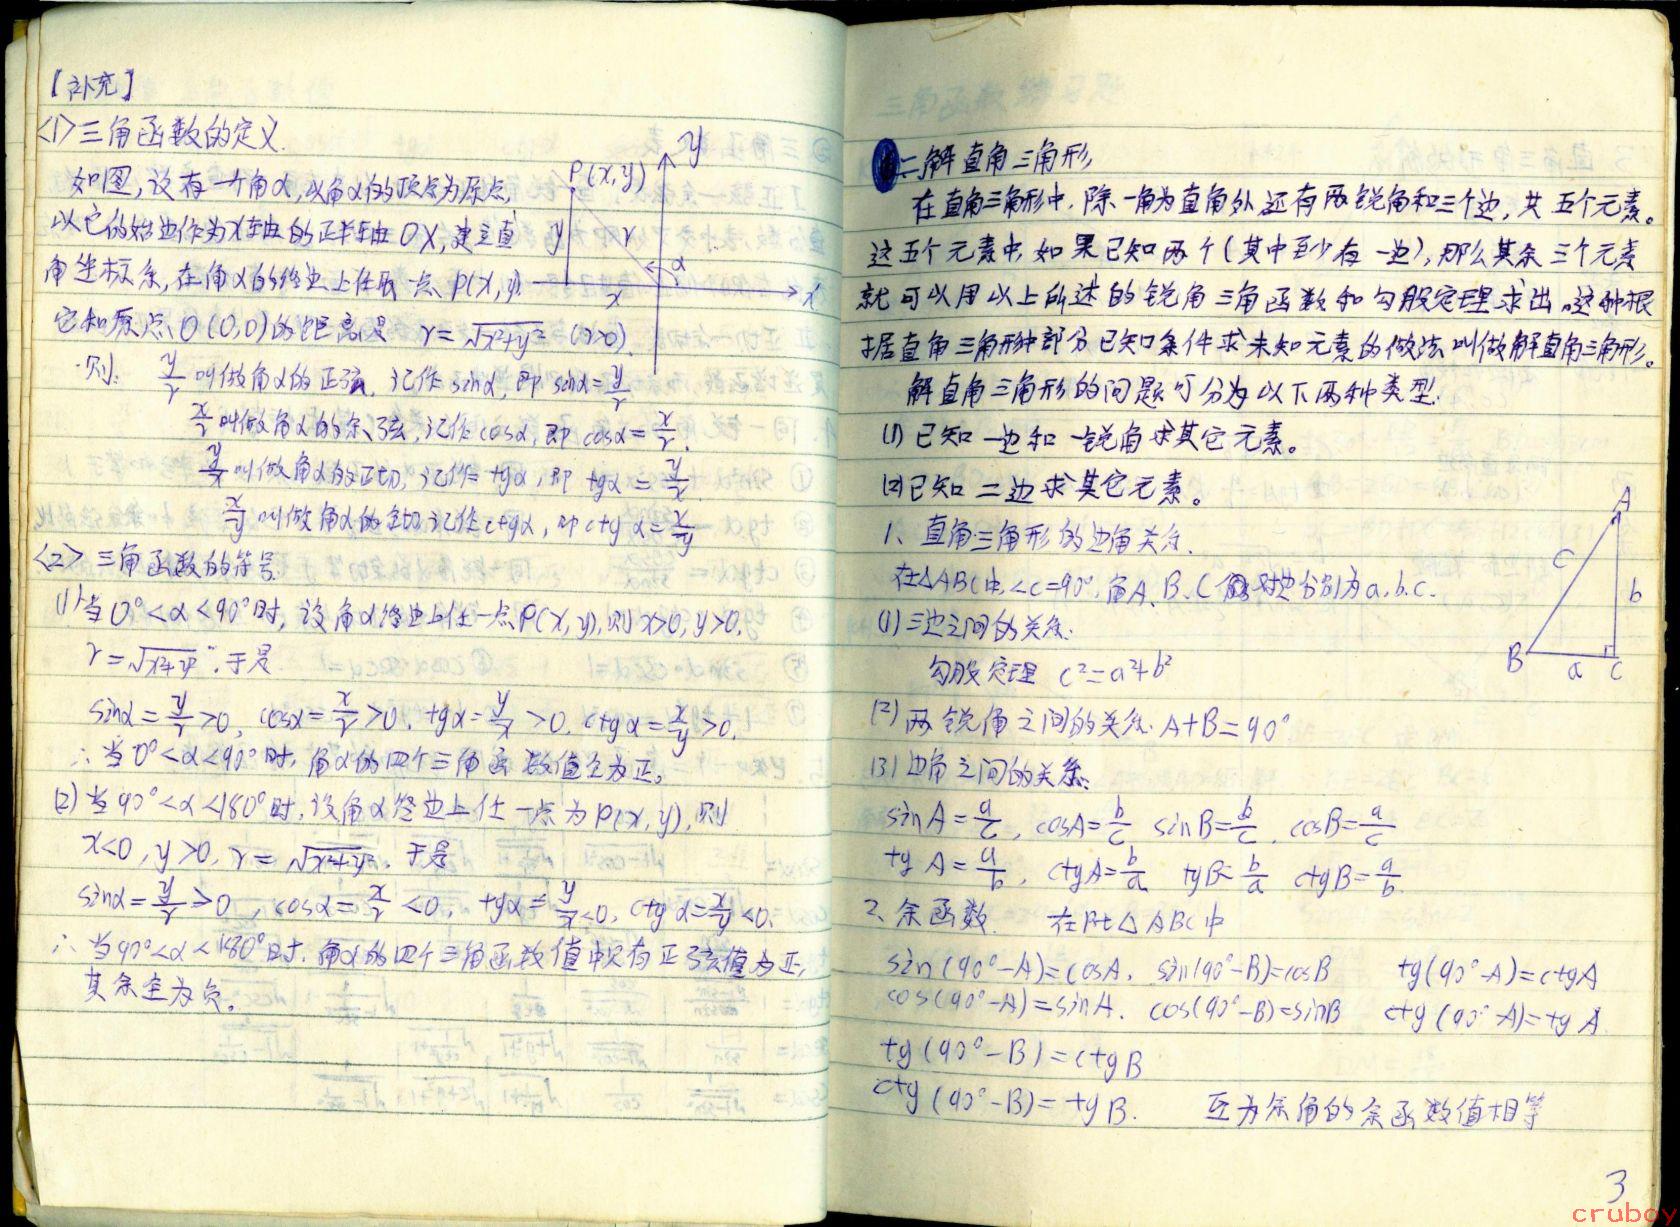 【补充】
<1>三角函数的定义.
如图,设有一个角α,以角α的顶点为原点,
以它的始边作为x轴的正半轴OX,建立直
角坐标系,在角α的终边上任取一点P(x,y)
它和原点O(0,0)的距离是 r=√x²+y² (r>0).
则: y/r 叫做角α的正弦, 记作 sinα, 即 sinα=y/r
x/r 叫做角α的余弦,记作 cosα, 即 cosα=x/r.
y/x 叫做角α的正切, 记作 tgα, 即 tgα=y/x.
x/y 叫做角α的余切,记作ctgα, 即 ctgα=x/y
P(x,y)
y
y
r
α
x
x
<2> 三角函数的符号
(1)当0°<α<90°时, 设角α终边上任一点P(x,y),则x>0,y>0,
r=√x²+y². 于是
sinα=y/r>0, cosα=x/r>0, tgα=y/x>0. ctgα=x/y>0.
∴当0°<α<90°时, 角α的四个三角函数值全为正。
(2)当90°<α<180°时,设角α终边上任一点为P(x,y),则
x<0,y>0,r=√x²+y², 于是
sinα=y/r>0, cosα=x/r<0, tgα=y/x<0, ctgα=x/y<0.
∴当90°<α<180°时, 角α的四个三角函数值中只有正弦值为正,
其余全为负。
二.解直角三角形,
在直角三角形中, 除一角为直角外还有两锐角和三个边, 共五个元素。
这五个元素中, 如果已知两个(其中至少有一边),那么其余三个元素
就可以用以上所述的锐角三角函数和勾股定理求出。这种根
据直角三角形中部分已知条件求未知元素的做法叫做解直角三角形。
解直角三角形的问题可分为以下两种类型:
(1)已知一边和一锐角求其它元素。
(2)已知二边求其它元素。
1、直角三角形的边角关系.
在△ABC中,∠C=90°,角A、B、C 对边分别为a.b.c.
(1)三边之间的关系:
勾股定理 c²=a²+b²
A
c
b
B
a
C
(2)两锐角之间的关系. A+B=90°
(3)边角之间的关系.
sinA=a/c, cosA=b/c sinB=b/c, cosB=a/c
tgA=a/b, ctgA=b/a tgB=b/a ctgB=a/b.
2、余函数. 在Rt△ABC中
sin(90°-A)=cosA. sin(90°-B)=cosB tg(90°-A)=ctgA
cos(90°-A)=sinA. cos(90°-B)=sinB ctg(90°-A)=tgA.
tg(90°-B)=ctgB
ctg(90°-B)=tgB. 互为余角的余函数值相等
3
cruboy